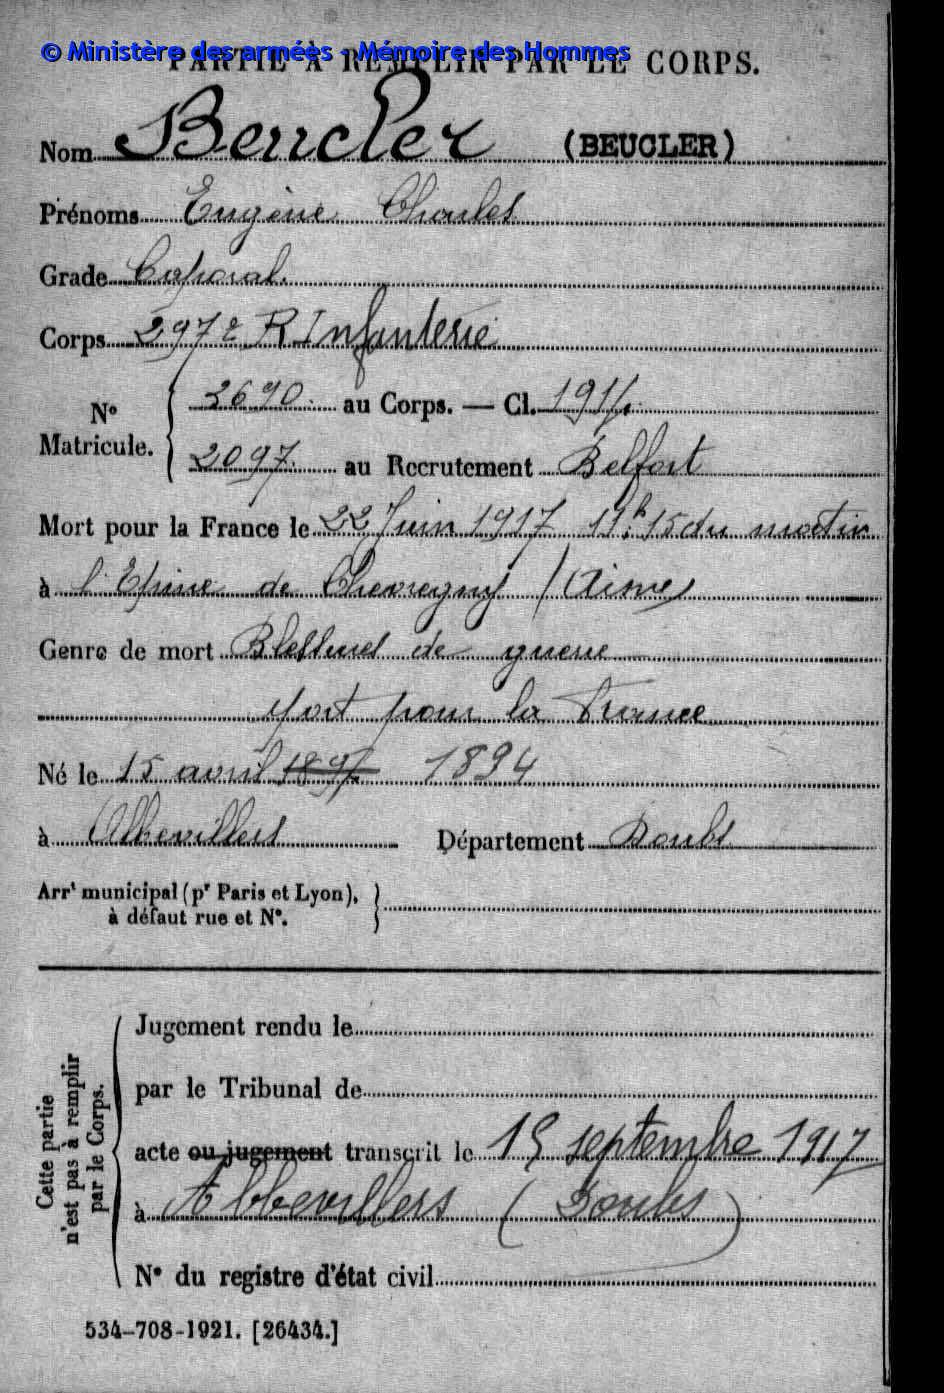 © Ministère des armées - Mémoire des Hommes
PARTIE À REMPLIR PAR LE CORPS.
Nom Beucler (BEUCLER)
Prénoms Eugène Charles
Grade Caporal.
Corps 297e R Infanterie
N° Matricule. 2690. au Corps. — Cl. 1914
2097. au Recrutement Belfort
Mort pour la France le 22 Juin 1917 11h.15 du matin
à l'Epine de Chevregny (Aisne)
Genre de mort Blessures de guerre
Mort pour la France
Né le 15 avril 1894 1894
à Abbevillers Département Doubs
Arrt municipal (pr Paris et Lyon),
à défaut rue et N°.
Cette partie
n'est pas à remplir
par le Corps.
Jugement rendu le
par le Tribunal de
acte ou jugement transcrit le 15 septembre 1917
à Abbevillers (Doubs)
N° du registre d'état civil
534-708-1921. [26434.]